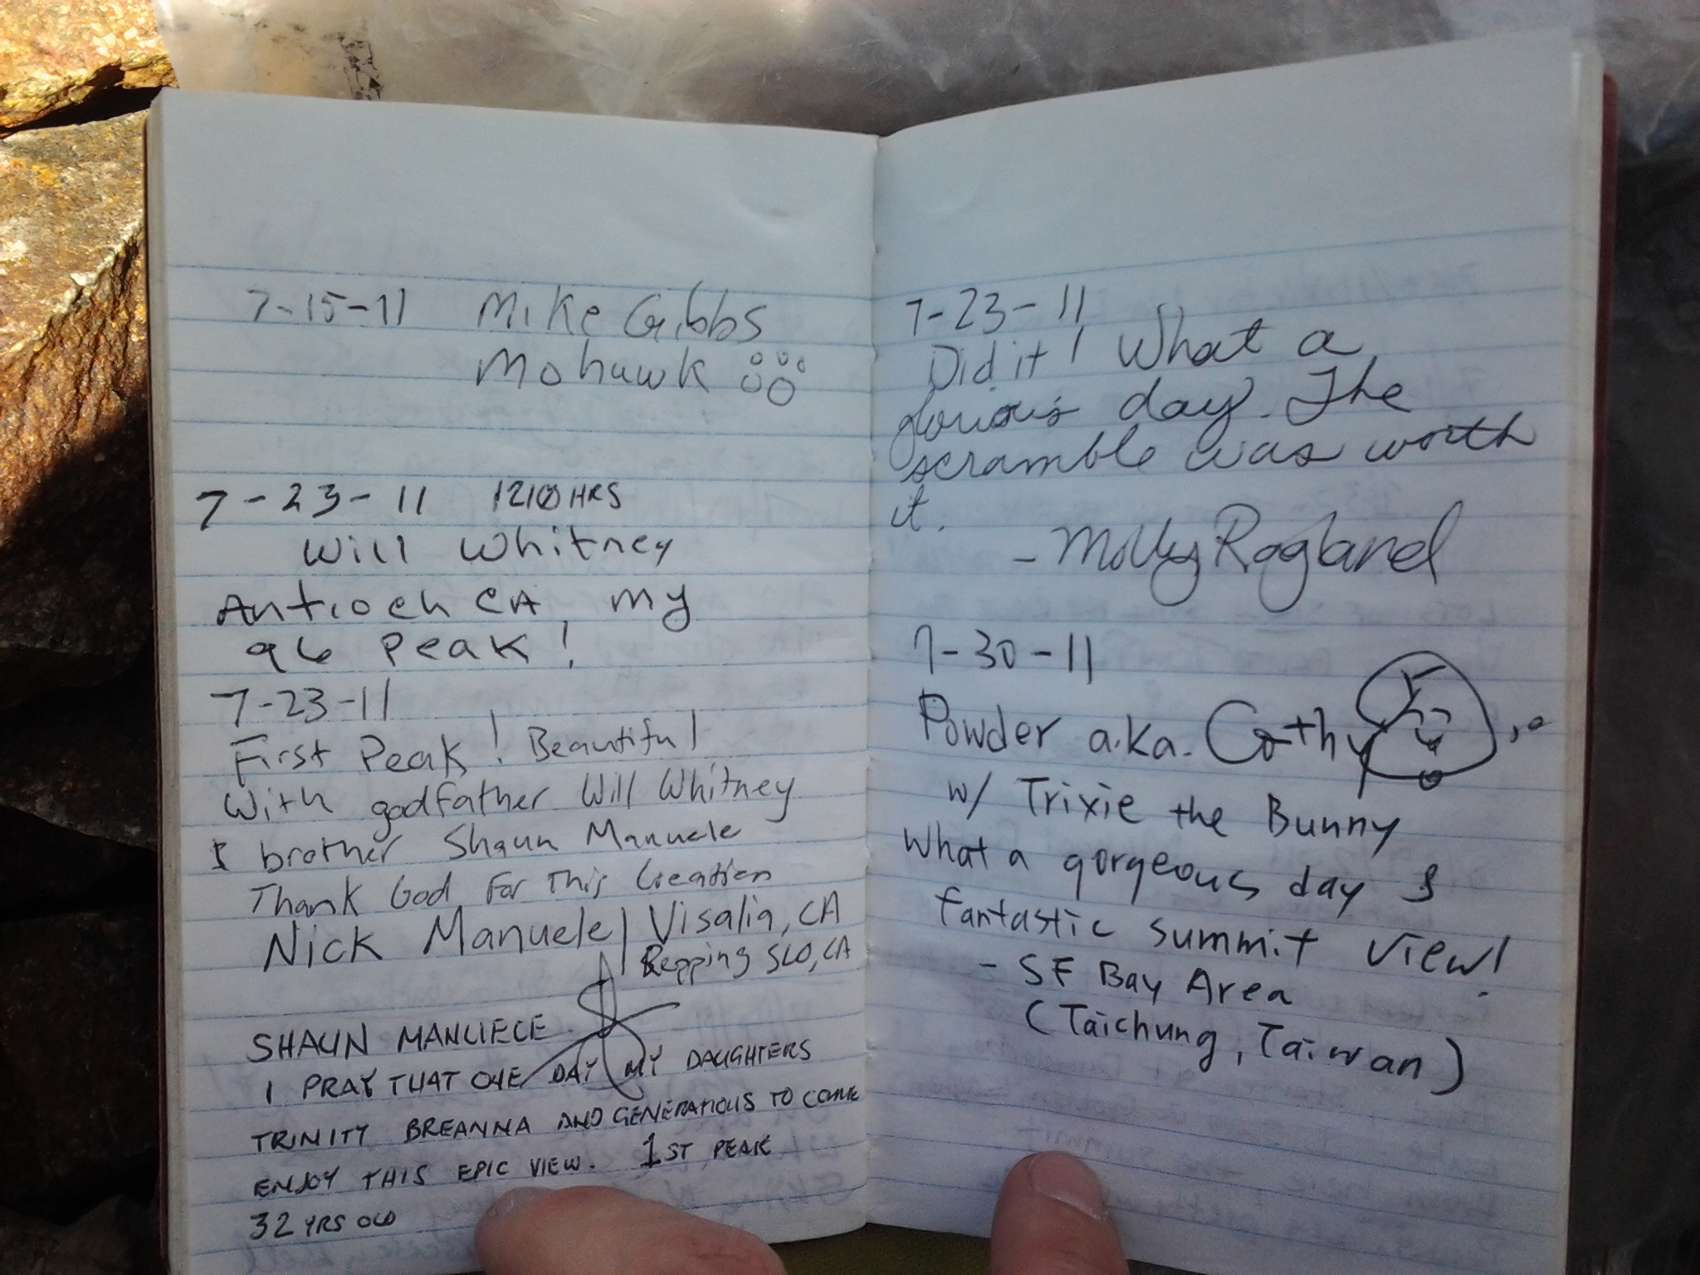 7-15-11 Mike Gibbs
Mohawk
7-23-11 1210 HRS
Will Whitney
Antioch CA, my
96 Peak!
7-23-11
First Peak! Beautiful
With godfather Will Whitney
& brother Shaun Manuele
Thank God For This Creation
Nick Manuele | Visalia, CA
Repping SLO, CA
SHAUN MANUELE
I PRAY THAT ONE DAY MY DAUGHTERS
TRINITY BREANNA AND GENERATIONS TO COME
ENJOY THIS EPIC VIEW. 1ST PEAK
32 YRS OLD
7-23-11
Did it! What a
glorious day. The
scramble was worth
it.
- Molly Ragland
7-30-11
Powder a.k.a. Cathy
w/ Trixie the Bunny
What a gorgeous day &
fantastic summit view!
- SF Bay Area
(Taichung, Taiwan)